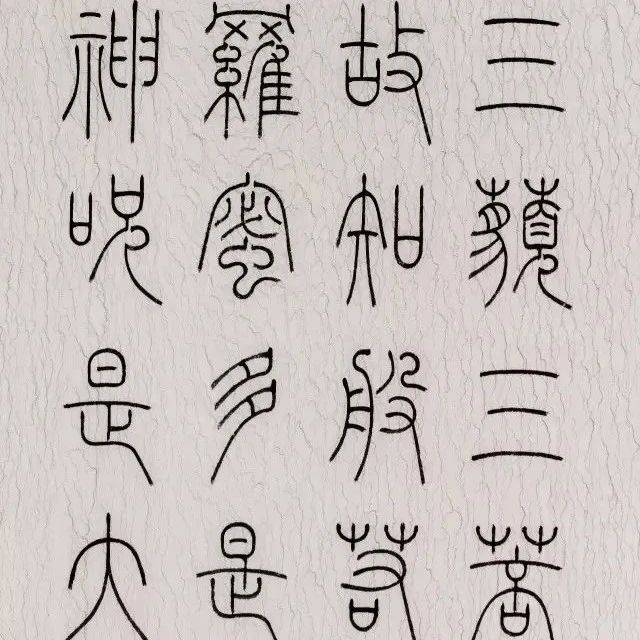 三藐三菩
故知般若
羅蜜多是
神呪是大